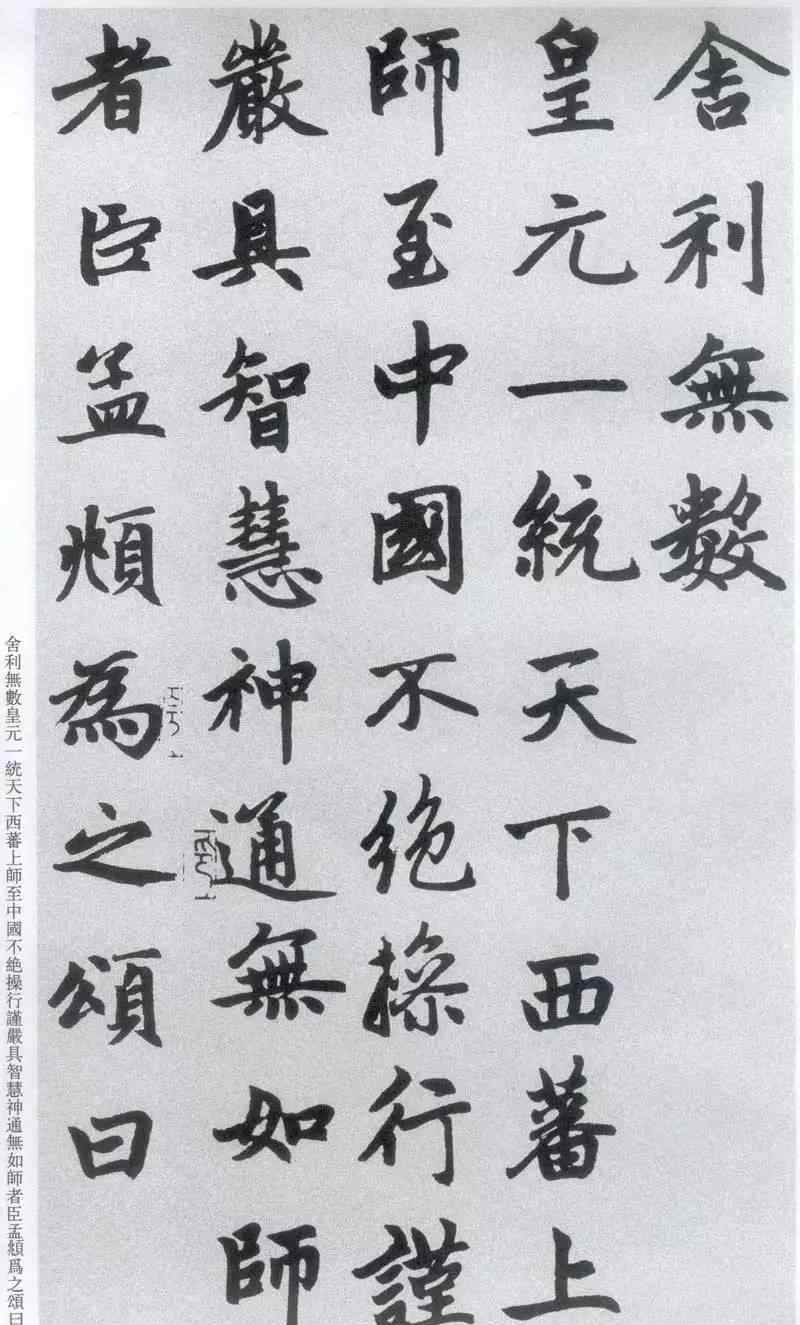 舍利無數
皇元一統天下西蕃上
師至中國不絶操行謹
嚴具智慧神通無如師
者臣孟頫為之頌曰
舍利無數皇元一統天下西蕃上師至中國不絶操行謹嚴具智慧神通無如師者臣孟頫爲之頌曰